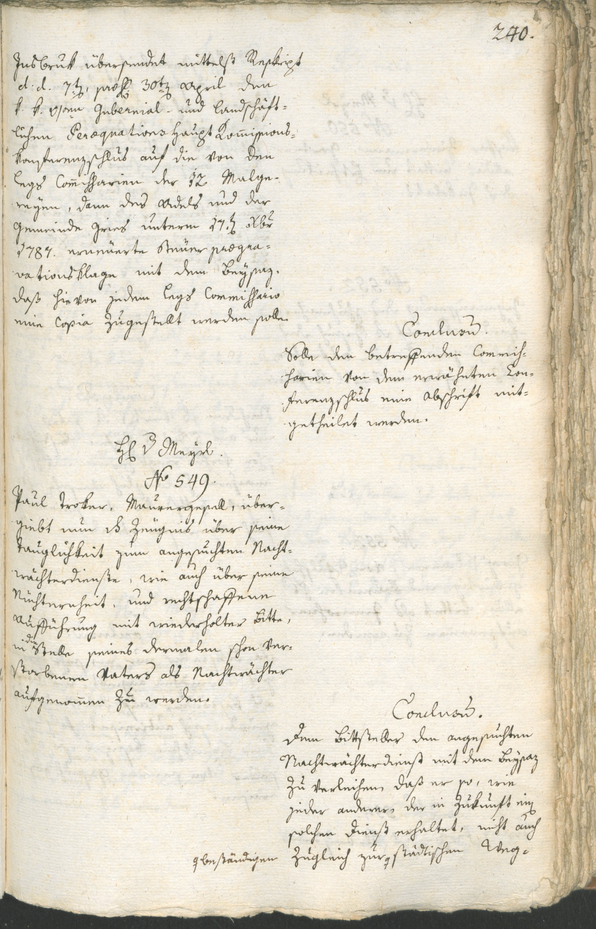 240.
Insbruk übersendet mittelst Reskript
d: d. 7t, prs. 30t April den
k. k. o/oem Gubernial- und landschäft-
lichen Peraequations Haupt Komissions-
Konferenzschlus auf die von den
legs Commissarien der 12 Malge-
reyen, dann des Adels und der
Gemeinde Gries unterm 17. Xbr
1787. erneuerte Steuer praegra-
vationsklage mit dem Beysaz.
daß hievon jedem legs Commissario
eine Copia zugestellt werden solle.
Conclusum.
Solle den betreffenden Commis-
sarien von dem erwähnten Con-
ferenzschlus eine Abschrift mit-
getheilet werden.
H: v Mayrl.
No 549.
Paul Troker, Maurergesell, über-
giebt nun Zeugnis über seine
Tauglichkeit zum angesuchten Nacht-
wächterdienste, wie auch über seine
Nüchternheit, und rechtschaffene
Aufführung mit wiederholter Bitte,
in die Stelle seines dermalen schon ver-
storbenen Vaters als Nachtwächter
aufgenommen zu werden.
Conclusum.
Dem Bittsteller den angesuchten
Nachtwächterdienst mit dem Beysaz
zu verleihen, daß er so, wie
jeder anderer, der in Zukunft ein
solchen Dienst erhaltet, nicht auch
zugleich zur städtischen Weg-
beständigen